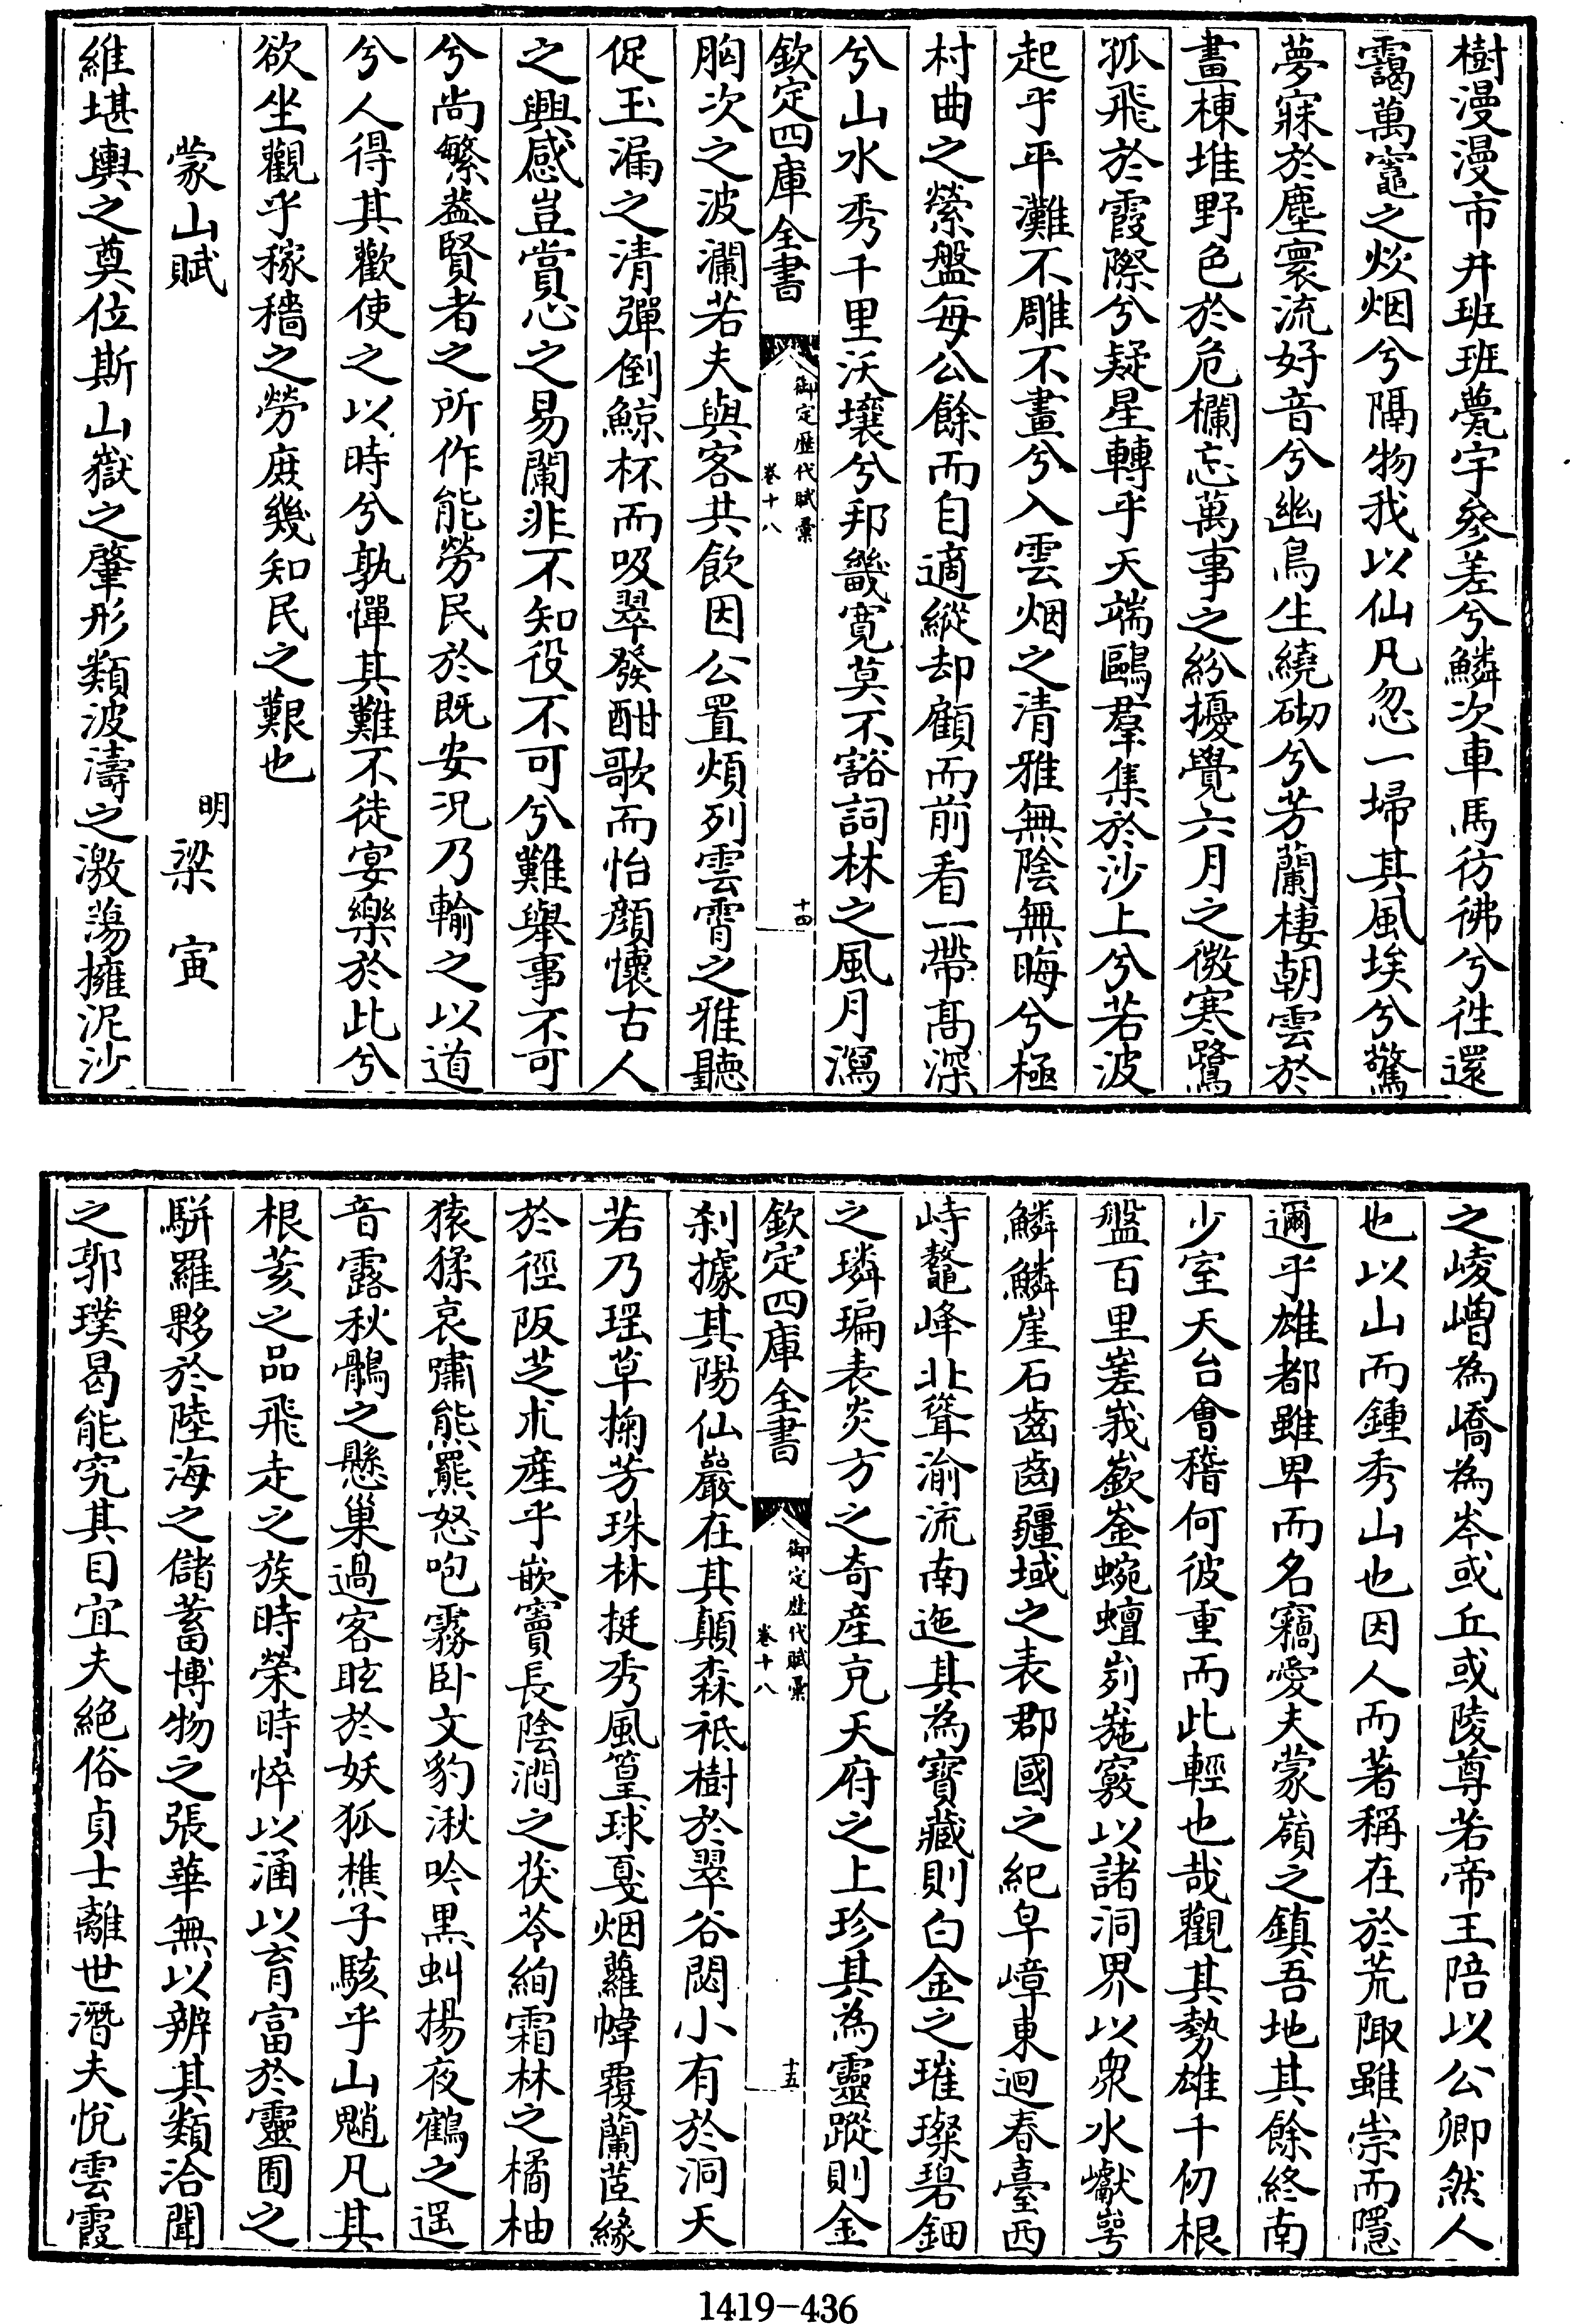 樹漫漫市井班班甍宇參差兮鱗次車馬彷彿兮徃還
靄萬竈之炊烟兮隔物我以仙凡忽一埽其風埃兮驚
夢寐於塵寰流好音兮幽鳥生繞砌兮芳蘭棲朝雲於
畫棟堆野色於危欄忘萬事之紛擾覺六月之微寒鷺
孤飛於霞際兮疑星轉乎天端鷗羣集於沙上兮若波
起乎平灘不雕不畫兮入雲烟之清雅無陰無晦兮極
村曲之縈盤每公餘而自適縱却顧而前看一帶髙深
兮山水秀千里沃壤兮邦畿寛莫不豁詞林之風月瀉
欽定四庫全書
御定歴代賦彙
卷十八
十四
胸次之波瀾若夫與客共飲因公置煩列雲霄之雅聽
促玉漏之清彈倒鯨杯而吸翠發酣歌而怡顔懷古人
之興感豈賞心之易闌非不知役不可兮難舉事不可
兮尚繁葢賢者之所作能勞民於既安况乃輸之以道
兮人得其歡使之以時兮孰憚其難不徒宴樂於此兮
欲坐觀乎稼穡之勞庶幾知民之艱也
蒙山賦
明 梁寅
維堪輿之奠位斯山嶽之肇形類波濤之激蕩擁泥沙
之崚嶒為嶠為岑或丘或陵尊若帝王陪以公卿然人
也以山而鍾秀山也因人而著稱在於荒陬雖崇而隱
邇乎雄都雖卑而名竊愛夫蒙嶺之鎮吾地其餘終南
少室天台會稽何彼重而此輕也哉觀其勢雄千仞根
盤百里嵳峩嶔崟蜿蟺峛崺竅以諸洞界以衆水巘崿
鱗鱗崖石齒齒疆域之表郡國之紀阜嶂東迴春臺西
峙鼇峰北聳渝流南迤其為寳藏則白金之璀璨碧鈿
之璘㻞表炎方之奇産充天府之上珍其為靈蹤則金
欽定四庫全書
御定歴代賦彙
卷十八
十五
刹據其陽仙巖在其顛森祗樹於翠谷閟小有於洞天
若乃瑶草掬芳珠林挺秀風篁球戛烟蘿幃覆蘭茝緣
於徑阪芝朮産乎嵌竇長陰澗之茯苓絢霜林之橘柚
猿猱哀嘯熊羆怒咆霧卧文豹湫吟黒虯揚夜鶴之遥
音露秋鶻之懸巢過客眩於妖狐樵子駭乎山魈凡其
根荄之品飛走之族時榮時悴以涵以育富於靈囿之
駢羅夥於陸海之儲蓄博物之張華無以辨其類洽聞
之郭璞曷能究其目宜夫絶俗貞士離世潛夫悅雲霞
1419-436